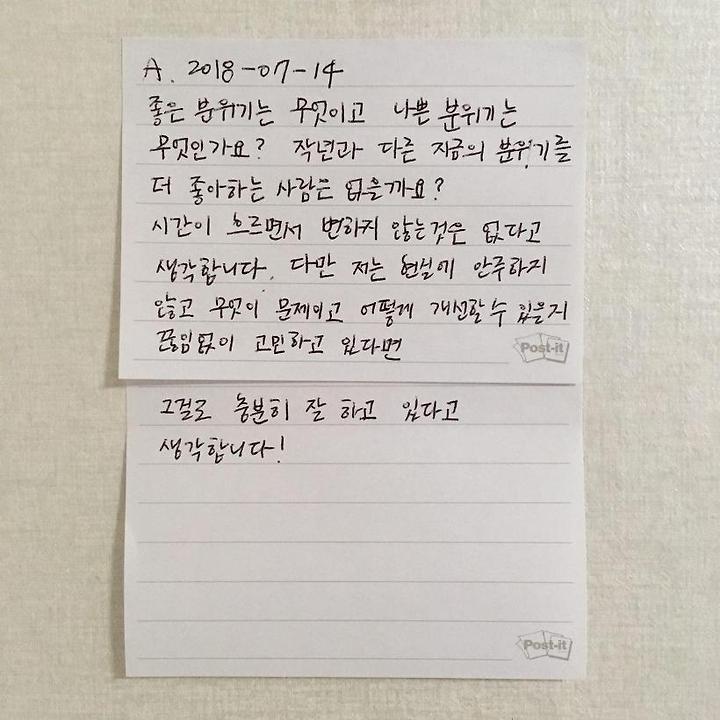 A. 2018-07-14
좋은 분위기는 무엇이고 나쁜 분위기는
무엇인가요? 작년과 다른 지금의 분위기를
더 좋아하는 사람은 없을까요?
시간이 흐르면서 변하지 않는것은 없다고
생각합니다. 다만 저는 현실에 안주하지
않고 무엇이 문제이고 어떻게 개선할 수 있을지
끊임없이 고민하고 있다면
Post-it
그걸로 충분히 잘 하고 있다고
생각합니다!
Post-it